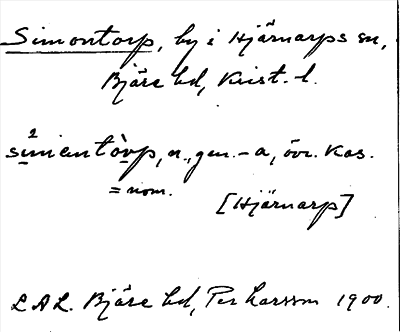 Simontorp, by i Hjärnarps sn,
Bjäre hd, Krist. l.
simentòrp, n., gen. -a, övr. kas.
= nom.
[Hjärnarp]
LAL. Bjäre hd, Per Larsson 1900.